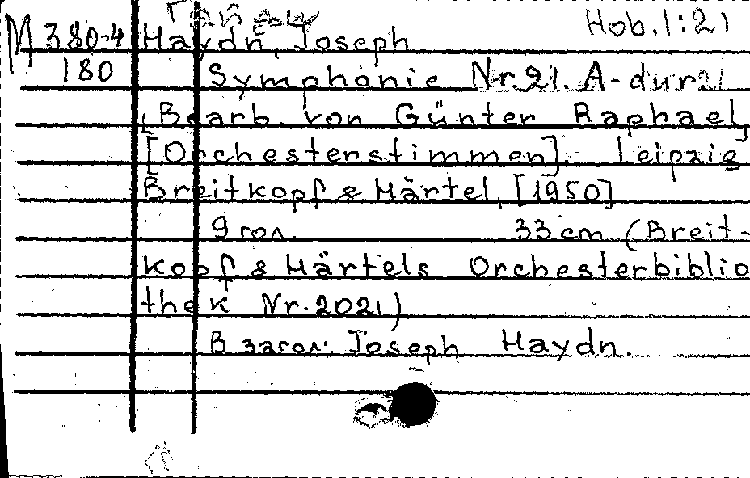 Ганди Hob. 1:21
M 380-4 Haydn, Joseph
180 Symphonie Nr. 21 A-dur
[Bearb. von Günter Raphael]
[Orchesterstimmen]. Leipzig
Breitkopf & Härtel, [1950]
9 гол. 33 cm (Breit-
kopf & Härtels Orchesterbiblio
thek Nr. 2021)
В загол. Joseph Haydn.